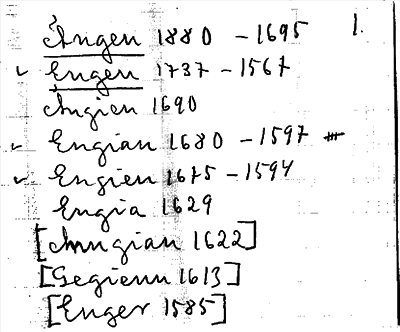 Ängen 1880 - 1695 1.
✓ Engen 1737 - 1567
Angien 1690
✓ Engian 1680 - 1597
✓ Engien 1675 - 1594
Engia 1629
[Anngian 1622]
[Gegienn 1613]
[Enger 1585]